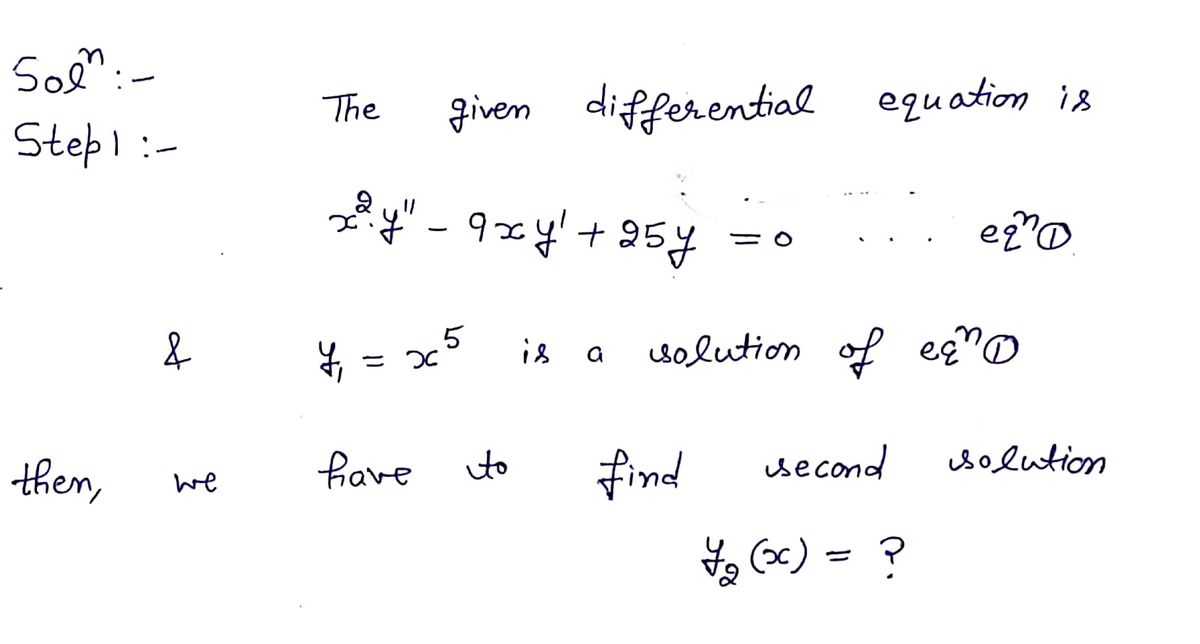 Solⁿ :-
Step 1 :-
The given differential equation is
x²·y'' - 9xy' + 25y = 0 ... eqⁿ①
& y₁ = x⁵ is a solution of eqⁿ①
then, we have to find second solution
y₂(x) = ?